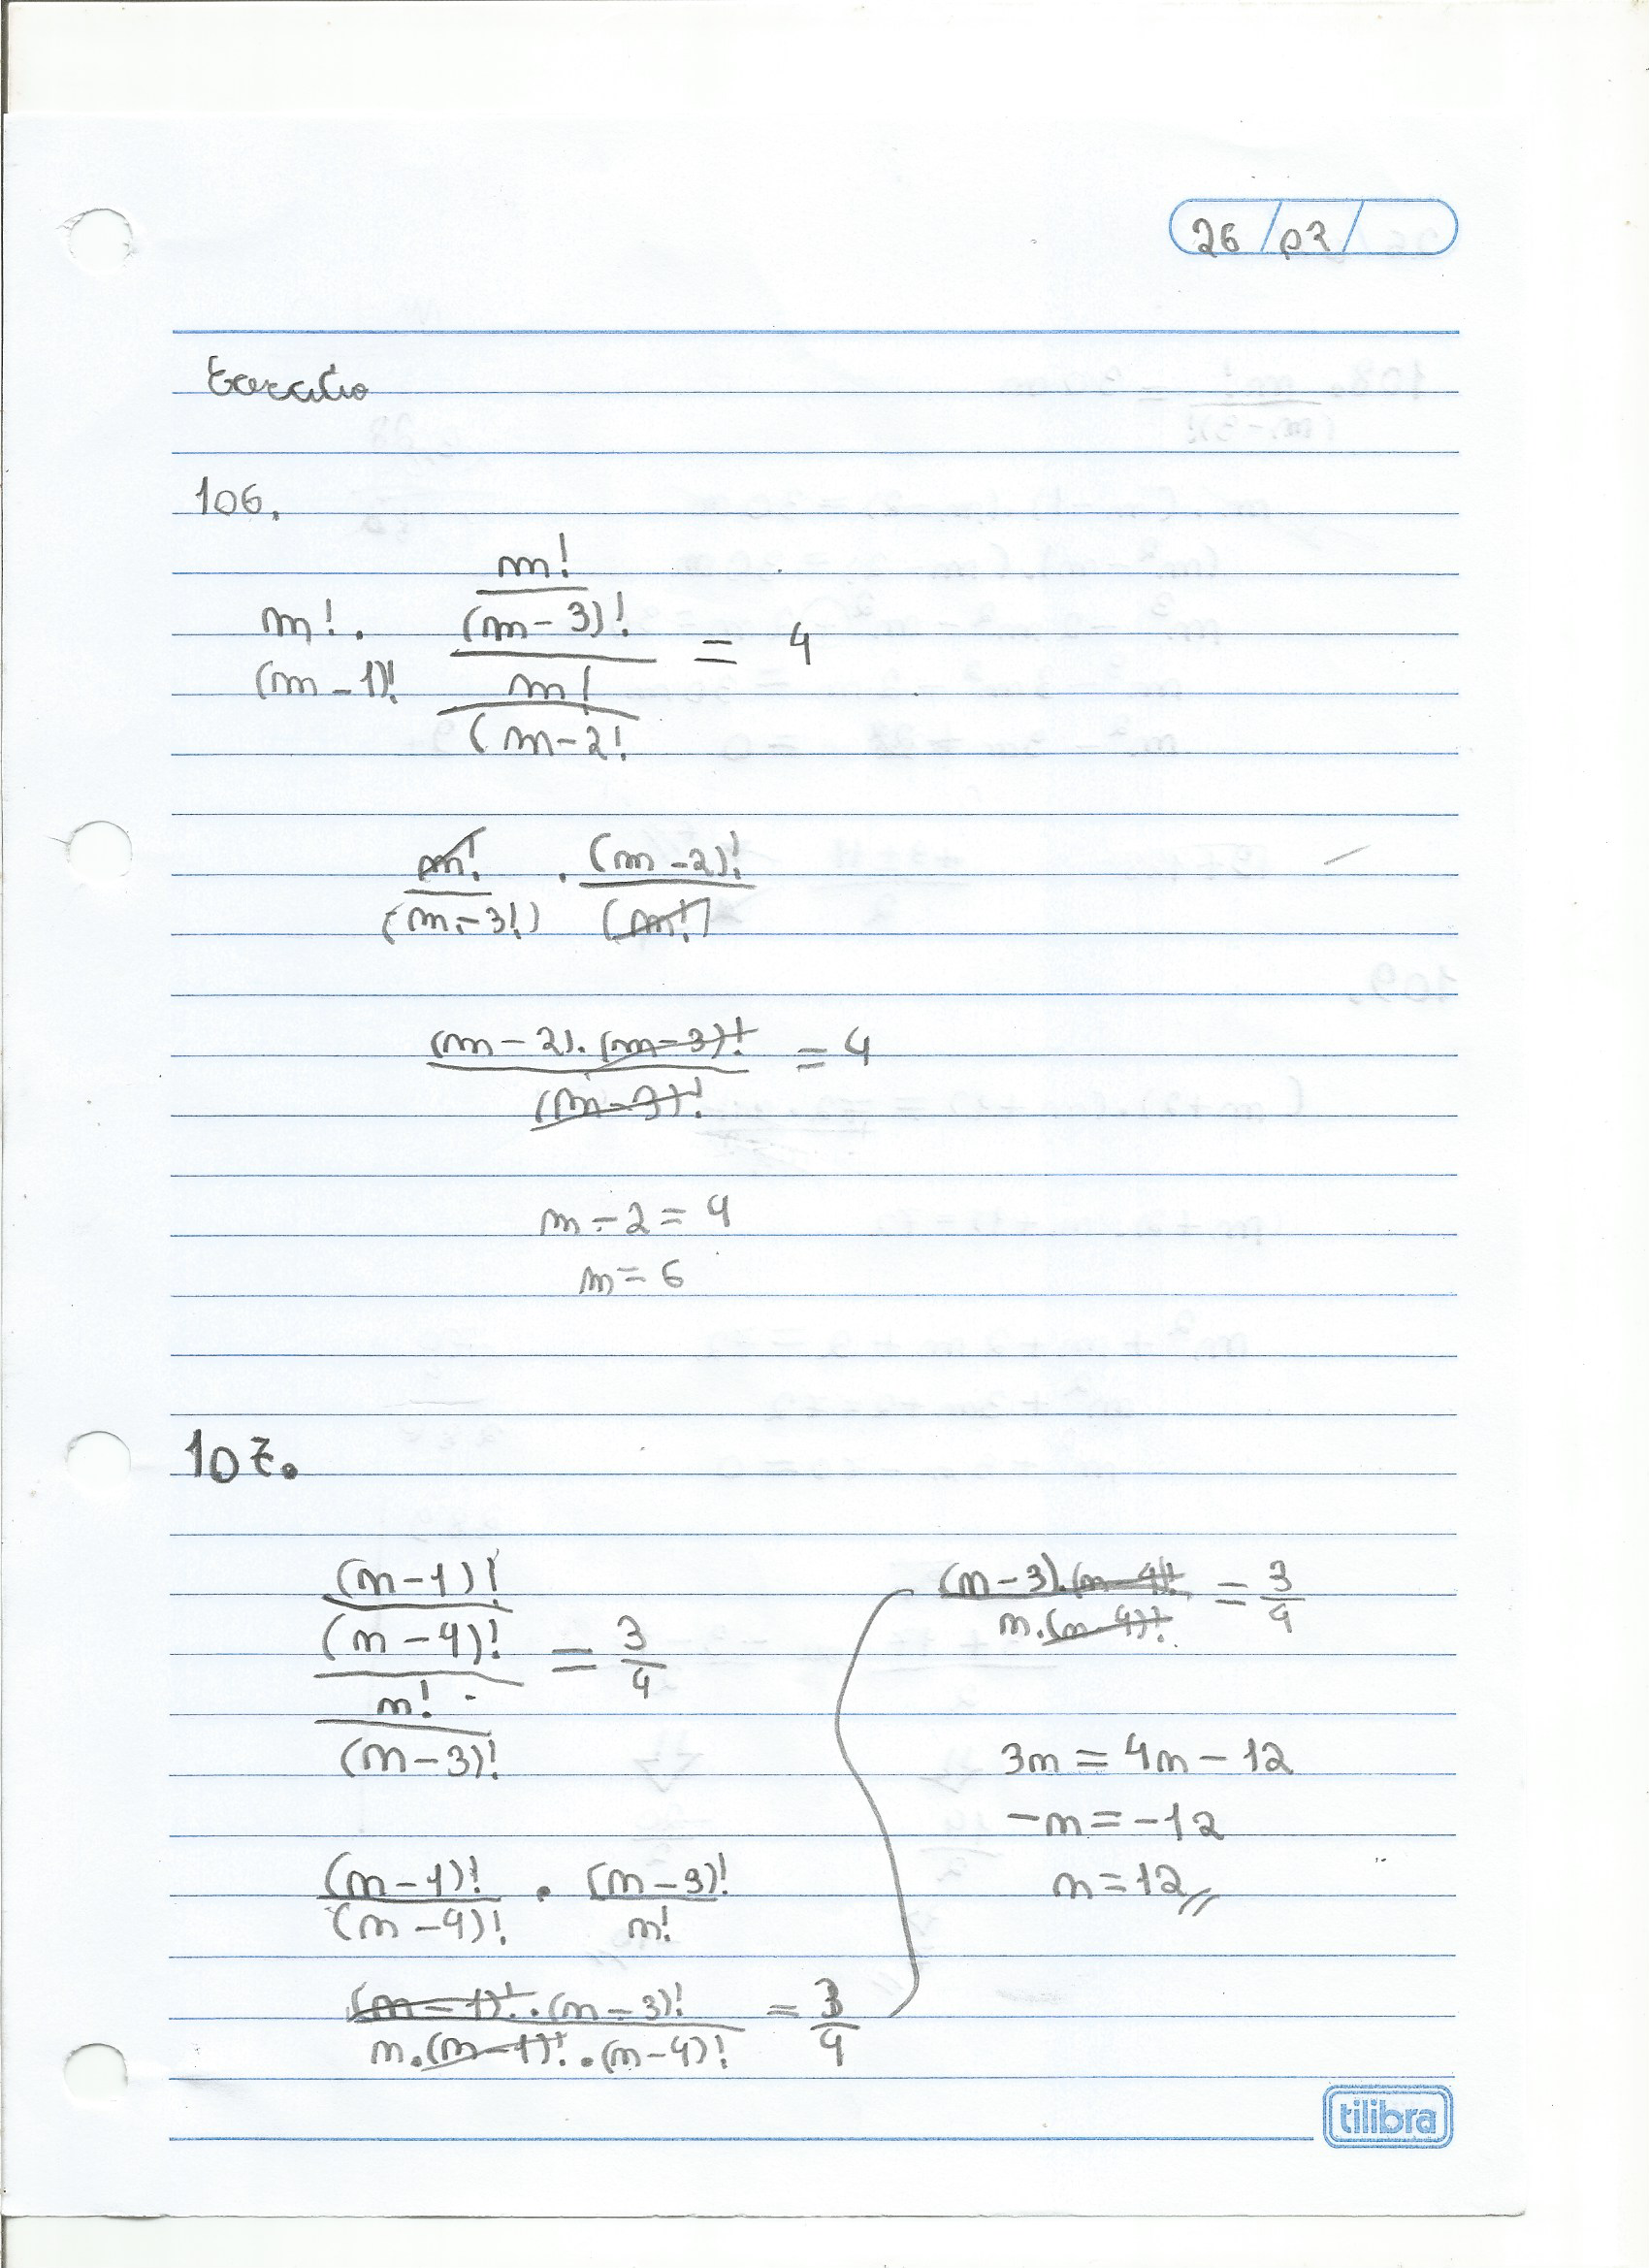 26 / 02 /
Exercício
106.
m! . (m-1)!
m!/(m-3)! / m!/(m-2! = 4
m!/(m-3!) . (m-2)!/(m!)
(m-2).(m-3)!/(m-3)! = 4
m-2 = 4
m = 6
107.
(m-1)!/(m-4)! / m!/(m-3)! = 3/4
(m-1)!/(m-4)! . (m-3)!/m!
(m-1)!.(m-3)!/m.(m-1)!.(m-4)! = 3/4
(m-3).(m-4)!/m.(m-4)! = 3/4
3m = 4m - 12
-m = -12
m = 12
tilibra